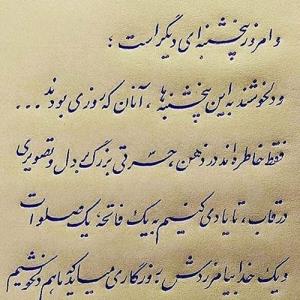 و امروز پنجشنبه‌ای دیگر است ؛
و دلخوشند به این پنجشنبه‌ها ، آنان که روزی بودند ...
فقط خاطره‌اند در ذهن ، حسرتی بزرگ بر دل و تصویری
در قاب ، تا یادی کنیم به یک فاتحه یک صلوات
و یک خدا بیامرزدش به روزگاری میایدکه ماهم دلخوشیم